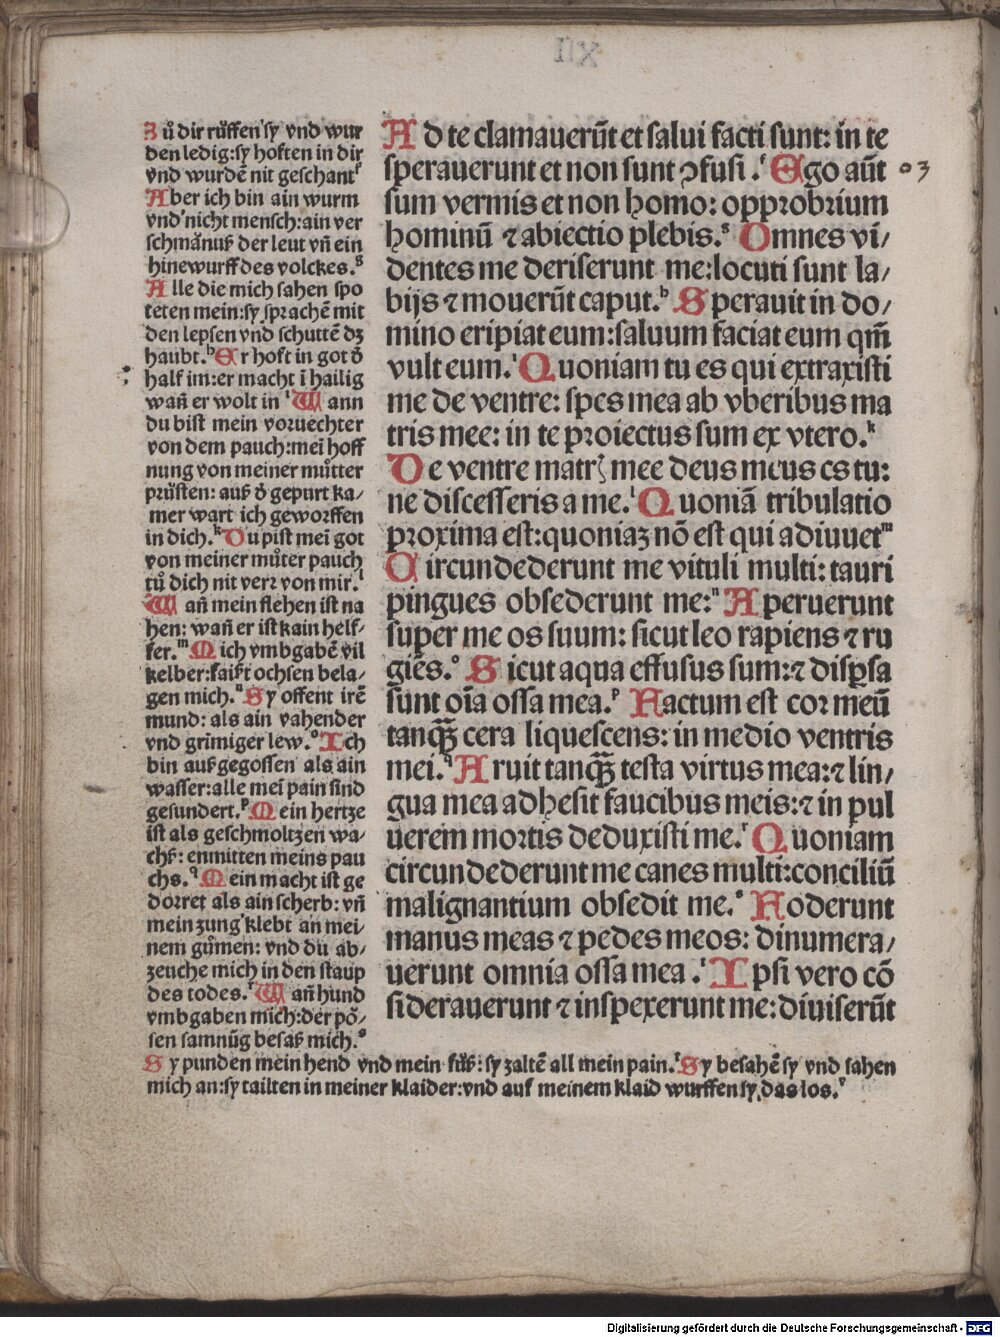 XII
Zů dir růffen sy vnd wur
den ledig: sy hoften in dir
vnd wurdē nit geschant
Aber ich bin ain wurm
vnd nicht mensch: ain ver
schmånuß der leut vn̄ ein
hinewurff des volckes.g
Alle die mich sahen spo
teten mein: sy sprachē mit
den lepsen vnd schuttē dz
haubt.h Er hoft in got d̕
half im: er macht ī hailig
wan̄ er wolt in i Wann
du bist mein voruechter
von dem pauch: mei hoff
nung von meiner můtter
průsten: auß d̕ gepurt ka/
mer wart ich geworffen
in dich.k Du pist mei got
von meiner můter pauch
tů dich nit verr von mir.l
Wan̄ mein flehen ist na
hen: wan̄ er ist kain helf/
fer.m Mich vmbgabē vil
kelber: faißt ochsen bela/
gen mich.n Sy offent irē
mund: als ain vahender
vnd grimiger lew.o Ich
bin auß gegossen als ain
wasser: alle mei pain sind
gesundert.p Mein hertze
ist als geschmoltzen wa/
chs: enmitten meins pau
chs.q Mein macht ist ge
dorret als ain scherb: vn̄
mein zung klebt an mei/
nem gůmen: vnd du ab/
zeuche mich in den staup
des todes.r Wan̄ hund
vmbgaben mich: der pö/
sen samnūg besaß mich.s
Sy punden mein hend vnd mein füß: sy zaltē all mein pain.t Sy besahē sy vnd sahen
mich an: sy tailten in meiner klaider: vnd auf meinem klaid wurffen sy das los.v
Ad te clamauerūt et salui facti sunt: in te
sperauerunt et non sunt ꝯfusi.f Ego aūt
sum vermis et non homo: opprobrium
hominū ⁊ abiectio plebis.g Omnes vi/
dentes me deriserunt me: locuti sunt la/
bijs ⁊ mouerūt caput.h Sperauit in do/
mino eripiat eum: saluum faciat eum qm̄
vult eum.i Quoniam tu es qui extraxisti
me de ventre: spes mea ab vberibus ma
tris mee: in te proiectus sum ex vtero.k
De ventre matrꝭ mee deus meus es tu:
ne discesseris a me.l Quoniā tribulatio
proxima est: quoniaꝫ nō est qui adiuuet m
Circundederunt me vituli multi: tauri
pingues obsederunt me: n Aperuerunt
super me os suum: sicut leo rapiens ⁊ ru
giēs.o Sicut aqua effusus sum: ⁊ disꝑsa
sunt oīa ossa mea.p Factum est cor meū
tanqꝫ cera liquescens: in medio ventris
mei.q Aruit tanqꝫ testa virtus mea: ⁊ lin/
gua mea adhesit faucibus meis: ⁊ in pul
uerem mortis deduxisti me.r Quoniam
circundederunt me canes multi: conciliū
malignantium obsedit me.s Foderunt
manus meas ⁊ pedes meos: dinumera/
uerunt omnia ossa mea.t Ipsi vero cō
siderauerunt ⁊ inspexerunt me: diuiserūt
o 3
Digitalisierung gefördert durch die Deutsche Forschungsgemeinschaft - DFG